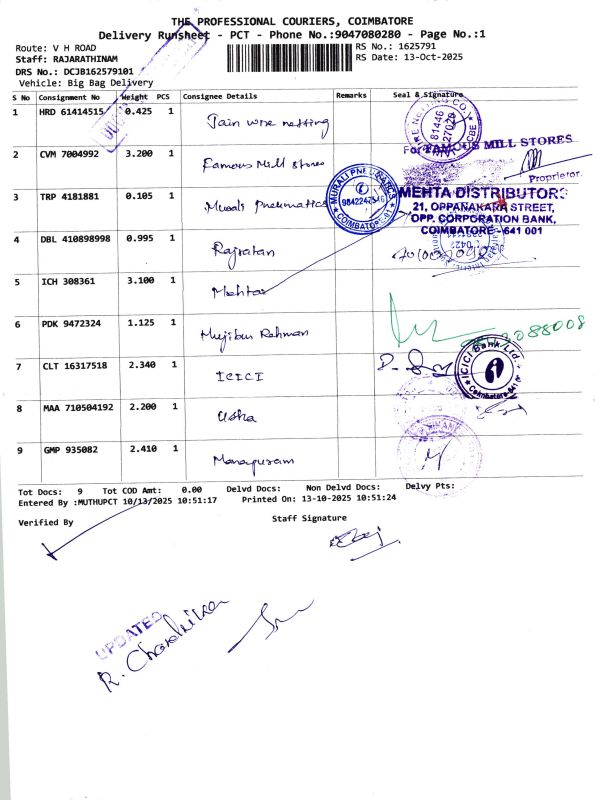 THE PROFESSIONAL COURIERS, COIMBATORE
Delivery Runsheet - PCT - Phone No.:9047080280 - Page No.:1
Route: V H ROAD
RS No.: 1625791
Staff: RAJARATHINAM
RS Date: 13-Oct-2025
DRS No.: DCJB162579101
Vehicle: Big Bag Delivery
S No Consignment No Weight PCS Consignee Details Remarks Seal & Signature
1 HRD 61414515 0.425 1 Jain wire netting
2 CVM 7004992 3.200 1 Famous Mill stores
For FAMOUS MILL STORES
Proprietor.
3 TRP 4181881 0.105 1 Murali pneumatics
MURALI PNEUMATICS
9842242346
COIMBATORE-1
MEHTA DISTRIBUTORS
21, OPPANAKARA STREET,
OPP. CORPORATION BANK,
COIMBATORE - 641 001
4 DBL 410898998 0.995 1 Rajratan
5 ICH 308361 3.100 1 Mehta
6 PDK 9472324 1.125 1 Mujibur Rahman
7 CLT 16317518 2.340 1 ICICI
ICICI Bank Ltd.
8 MAA 710504192 2.200 1 Usha
9 GMP 935082 2.410 1 Manapuram
Tot Docs: 9 Tot COD Amt: 0.00 Delvd Docs: Non Delvd Docs: Delvy Pts:
Entered By :MUTHUPCT 10/13/2025 10:51:17 Printed On: 13-10-2025 10:51:24
Verified By
Staff Signature
UPDATED